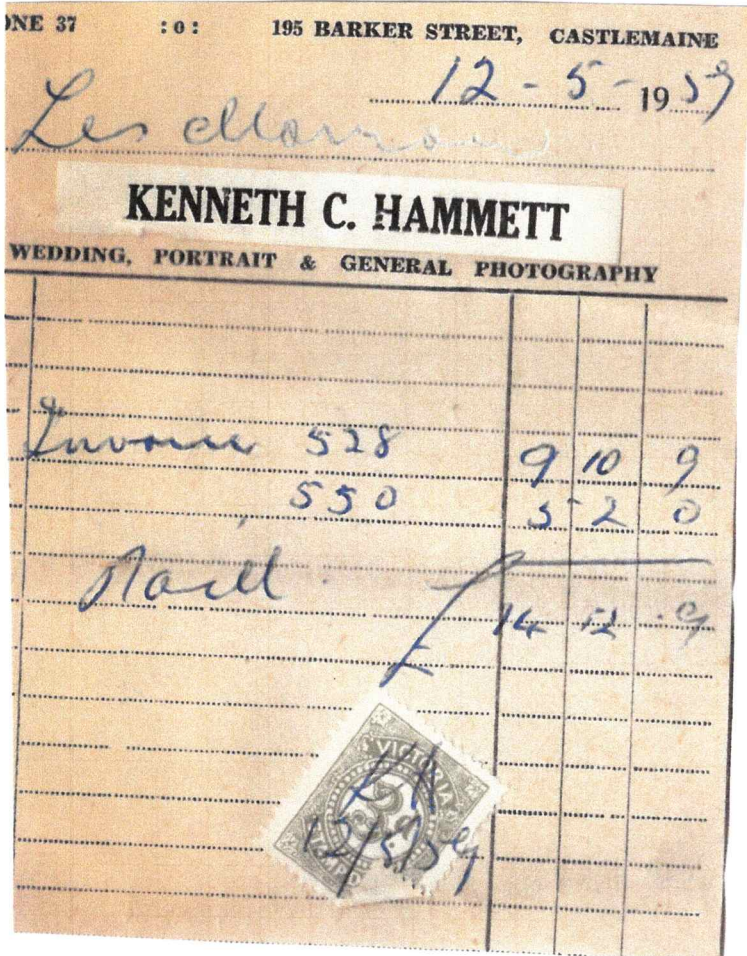 ONE 37 :o: 195 BARKER STREET, CASTLEMAINE
12 - 5 - 1959
Les
KENNETH C. HAMMETT
WEDDING, PORTRAIT & GENERAL PHOTOGRAPHY
Invoice 528 9 10 9
550 5 2 0
£ 14 12 9
VICTORIA
KH
12/5/59